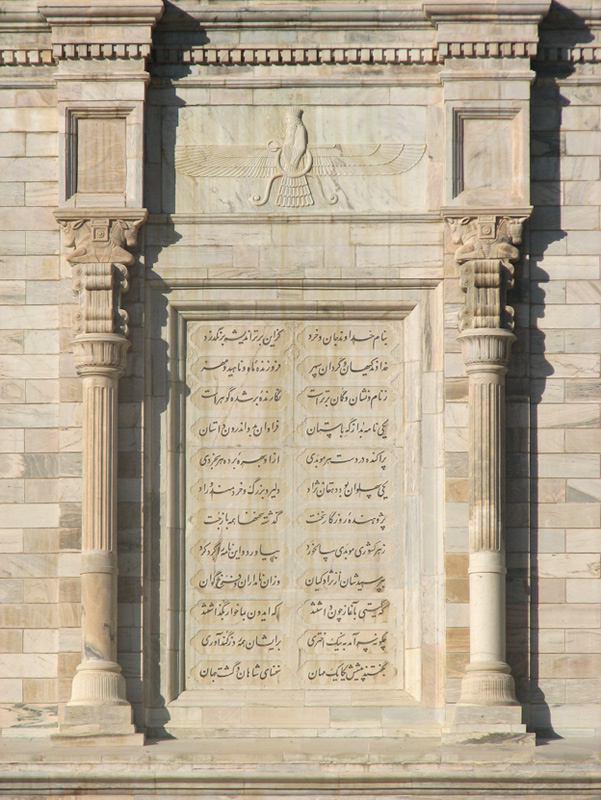 بنام خداوند جان و خرد کزین برتر اندیشه برنگذرد
خداوند کیهان و گردان سپهر فروزنده ماه و ناهید و مهر
ز نام و نشان و گمان برتر است نگارندهٔ بر شده گوهر است
یکی نامه بد از گه باستان فراوان بدو اندرون داستان
پراکنده در دست هر موبدی ازو بهرهٔ برده هر بخردی
یکی پهلوان بود دهقان نژاد دلیر و بزرگ و خردمند و راد
پژوهندهٔ روزگار نخست گذشته سخنها همه باز جست
ز هر کشوری موبدی سالخورد بیاورد و این نامه را گرد کرد
بپرسیدشان از نژاد کیان وزان نامداران و فرخ گوان
که گیتی بآغاز چون داشتند که ایدون بما خوار بگذاشتند
چگونه سر آمد به نیک اختری برایشان همه روز گندآوری
بگفتند پیشش یکایک مهان سخنهای شاهان و گشت جهان